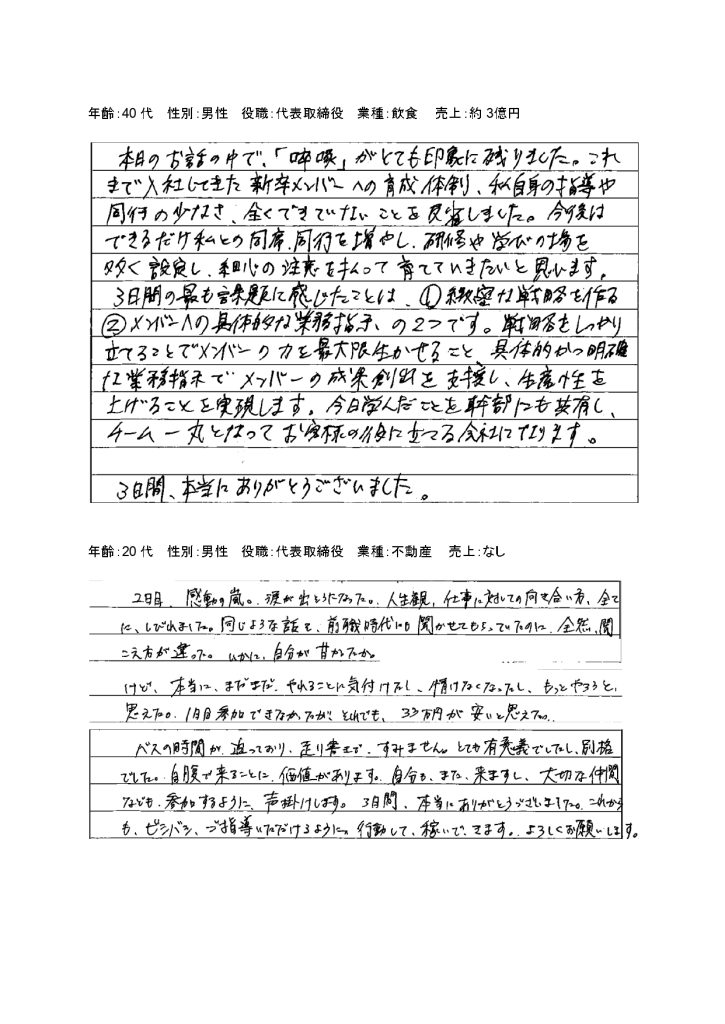 年齢:40代 性別:男性 役職:代表取締役 業種:飲食 売上:約3億円
本日のお話の中で、「啐啄」がとても印象に残りました。これ
まで入社してきた新卒メンバーへの育成体制、私自身の指導や
同行の少なさ、全くできていないことを反省しました。今後は
できるだけ私との同席、同行を増やし、研修や学びの場を
多く設定し、細心の注意を払って育てていきたいと思います。
3日間の最も課題に感じたことは、①緻密な戦略を作る
②メンバーへの具体的な業務指示、の2つです。戦略をしっかり
立てることでメンバーの力を最大限生かせること、具体的かつ明確
な業務指示でメンバーの成果創出を支援し、生産性を
上げることを実現します。今日学んだことを幹部にも共有し、
チーム一丸となってお客様の役に立てる会社になります。
3日間、本当にありがとうございました。
年齢:20代 性別:男性 役職:代表取締役 業種:不動産 売上:なし
2日目、感動の嵐。涙が出そうになった。人生観、仕事に対しての向き合い方、全て
に、しびれました。同じような話を、前職時代にも聞かせてもらっていたのに、全然、聞
こえ方が違った。いかに、自分が甘かったか。
けど、本当に、まだまだ、やれることに気付けたし、情けなくなったし、もっとやろうと、
思えた。1日目参加できなかったが、それでも、33万円が安いと思えた。
バスの時間が迫っており、走り書きで、すみません。とても有意義でしたし、別格
でした。自腹で来ることに、価値があります。自分も、また、来ますし、大切な仲間
なども、参加するように、声掛けします。3日間、本当にありがとうございました。これから
も、ビシバシ、ご指導いただけるように、行動して、稼いで、きます。よろしくお願いします。